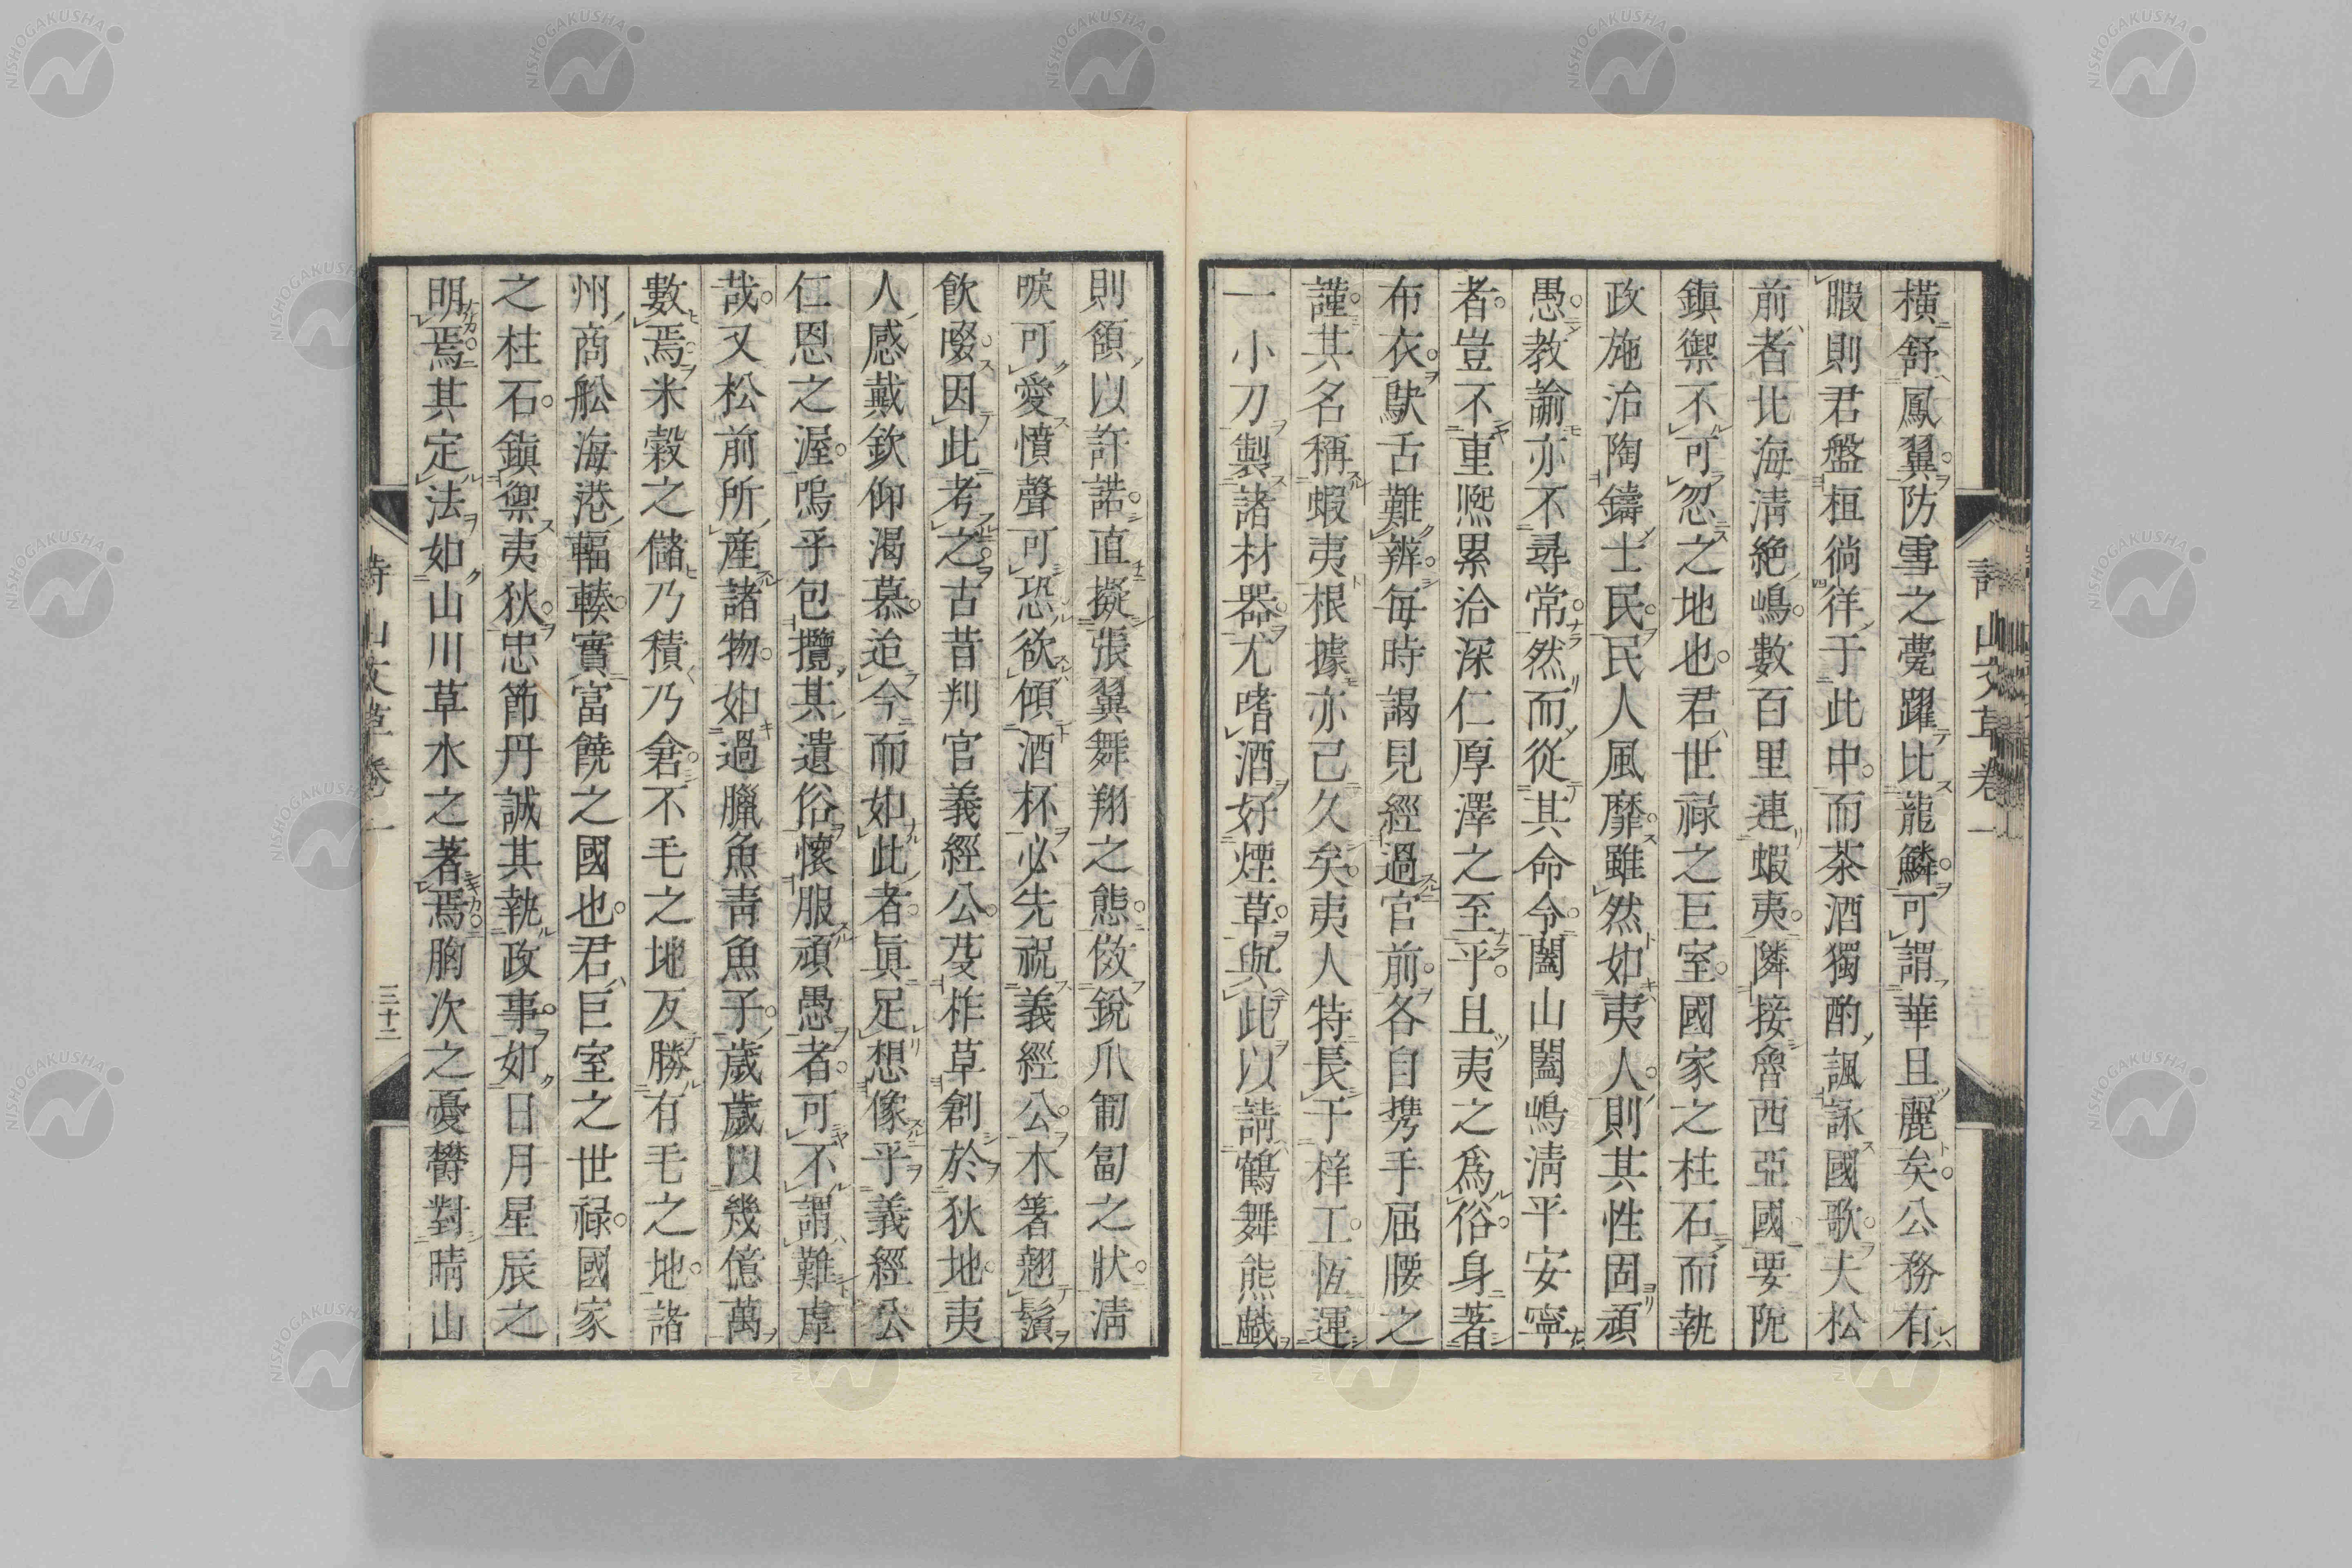 橫舒鳳翼防雪之甍躍比龍鱗可謂華且麗矣公務有
暇則君盤桓徜徉于此中而茶酒獨酌諷詠國歌夫松
前者比海淸絶嶋數百里連蝦夷隣接魯西亞國要阨
鎭禦不可忽之地也君世禄之巨室國家之柱石而執
政施治陶鑄士民民人風靡雖然如夷人則其性固頑
愚教諭亦不尋常然而從其命令闔山闔嶋淸平安寧
者豈不重熈累洽深仁厚澤之至乎且夷之爲俗身著
布衣鴃舌難辨每時謁見經過官前各自携手屈腰之
謹其名稱蝦夷根據亦已久矣夷人特長于梓工恆運
一小刀製諸材器尤嗜酒好煙草與此以請鶴舞熊戱
則頷以許諾直擬張翼舞翔之態傚銳爪匍匐之狀淸
唳可愛憤聲可恐欲傾酒杯必先祝義經公木箸翹鬚
飮啜因此考之古昔判官義經公芟柞草創於狄地夷
人感戴欽仰渴慕迨今而如此者眞足想像乎義經公
仁恩之渥嗚乎包攬其遺俗懷服頑愚者可不謂難虖
哉又松前所産諸物如過臘魚靑魚子歲歲以幾億萬
數焉米穀之儲乃積乃倉不毛之地反勝有毛之地諸
州商舩海港輻輳實富饒之國也君巨室之世禄國家
之柱石鎭禦夷狄忠節丹誠其執政事如日月星辰之
明焉其定法如山川草木之著焉胸次之憂欝對晴山
山文草卷一
三十二